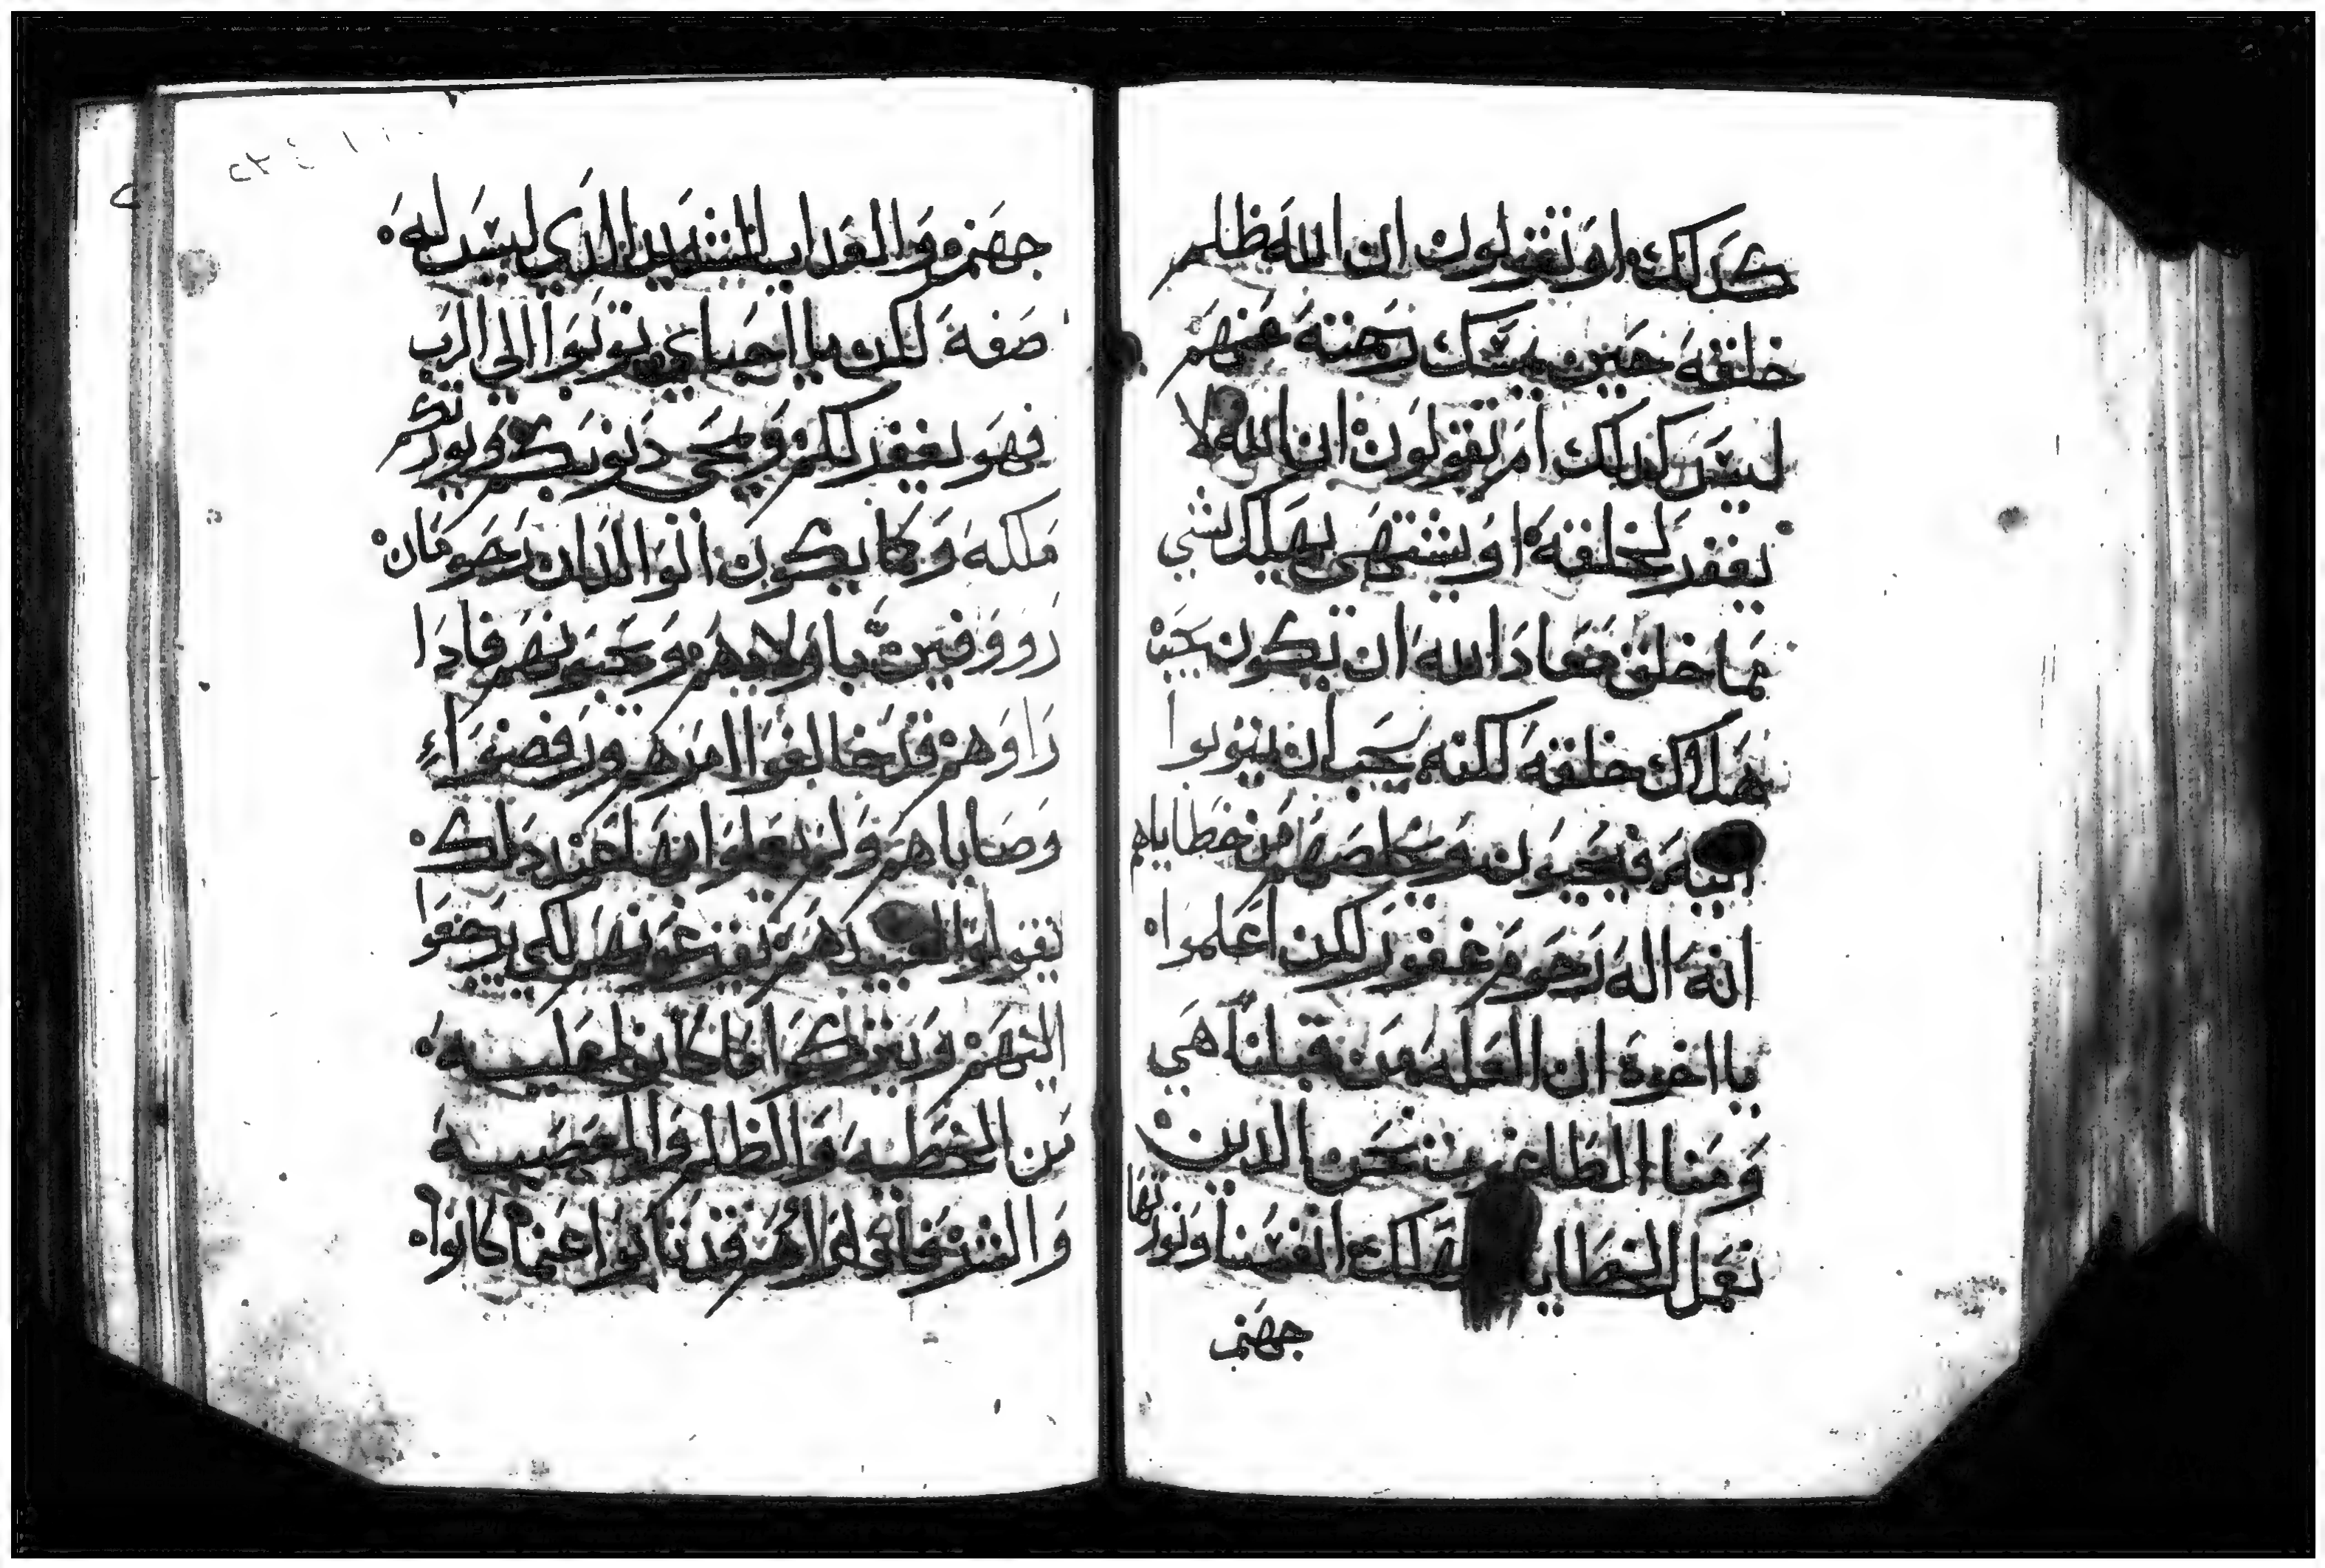 كدلك او تقولون ان الله ظلم
خلقه حين يمسك رحمته عنهم
ليس كدلك ام تقولون ان الله لا
يغفر لخلقه او يشتهي يهلك شي
مما خلق معاد الله ان يكون يحب
هلاك خلقه لكنه يحب ان يتوبوا
اليه فيحيون ويخلصهم من خطاياهم
انه اله رحوم غفور لكن اعلموا
يا اخوة ان العله من قبلنا هي
ومنا الطاغين نحن الدين
نعمل الخطايا نهلك انفسنا ونورتها
جهنم
جهنم والعداب الشديد الدي ليس له
صفة لكن يا احباي توبوا الي الرب
فهو يغفر لكم ويمحي دنوبكم ويورتكم
ملكه وكما يكون ابوا الدان رحومان
رووفين باولادهم ويحبونهم فادا
راوهم قد خالفوا امرهم ورفضوا
وصاياهم ولم يعلوا بها عند دلك
يقولوا لعبيدهم يفزعونهم لكي يرجعوا
اليهم ويتركوا ما كانوا عليه
من الخطيه والظلم والمعصيه
والشر فادا هم قد تابوا عما كانوا